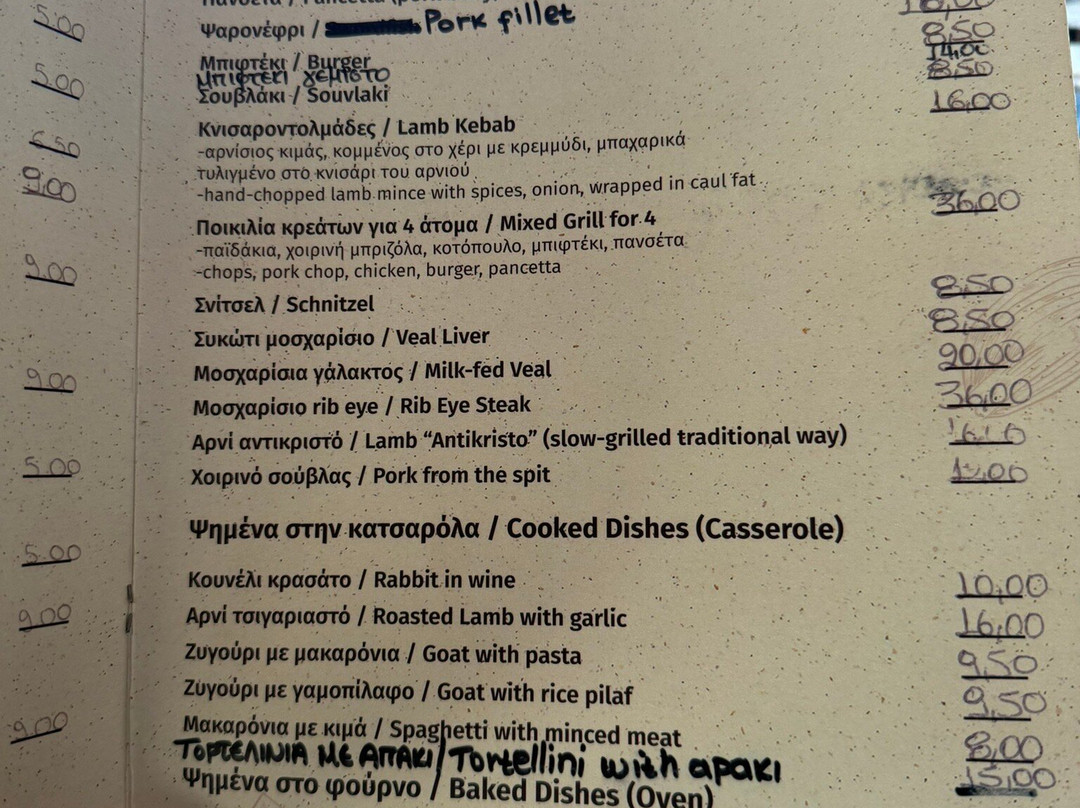 5.00
5.00
6.50
9.00
9.00
9.00
5.00
5.00
9.00
9.00
Πανσέτα / Pancetta
Ψαρονέφρι / Pork fillet
Μπιφτέκι / Burger 8,50
Μπιφτέκι γεμιστο 14,00
Σουβλάκι / Souvlaki 8,50
Κνισαροντολμάδες / Lamb Kebab 16,00
-αρνίσιος κιμάς, κομμένος στο χέρι με κρεμμύδι, μπαχαρικά
τυλιγμένο στο κνισάρι του αρνιού
-hand-chopped lamb mince with spices, onion, wrapped in caul fat
Ποικιλία κρεάτων για 4 άτομα / Mixed Grill for 4 36,00
-παϊδάκια, χοιρινή μπριζόλα, κοτόπουλο, μπιφτέκι, πανσέτα
-chops, pork chop, chicken, burger, pancetta
Σνίτσελ / Schnitzel 8,50
Συκώτι μοσχαρίσιο / Veal Liver 8,50
Μοσχαρίσια γάλακτος / Milk-fed Veal 20,00
Μοσχαρίσιο rib eye / Rib Eye Steak 36,00
Αρνί αντικριστό / Lamb “Antikristo” (slow-grilled traditional way)
Χοιρινό σούβλας / Pork from the spit
Ψημένα στην κατσαρόλα / Cooked Dishes (Casserole)
Κουνέλι κρασάτο / Rabbit in wine 10,00
Αρνί τσιγαριαστό / Roasted Lamb with garlic 16,00
Ζυγούρι με μακαρόνια / Goat with pasta 9,50
Ζυγούρι με γαμοπίλαφο / Goat with rice pilaf 9,50
Μακαρόνια με κιμά / Spaghetti with minced meat 8,00
ΤΟΡΤΕΛΙΝΙΑ ΜΕ ΑΠΑΚΙ / Tortellini with apaki 15,00
Ψημένα στο φούρνο / Baked Dishes (Oven)